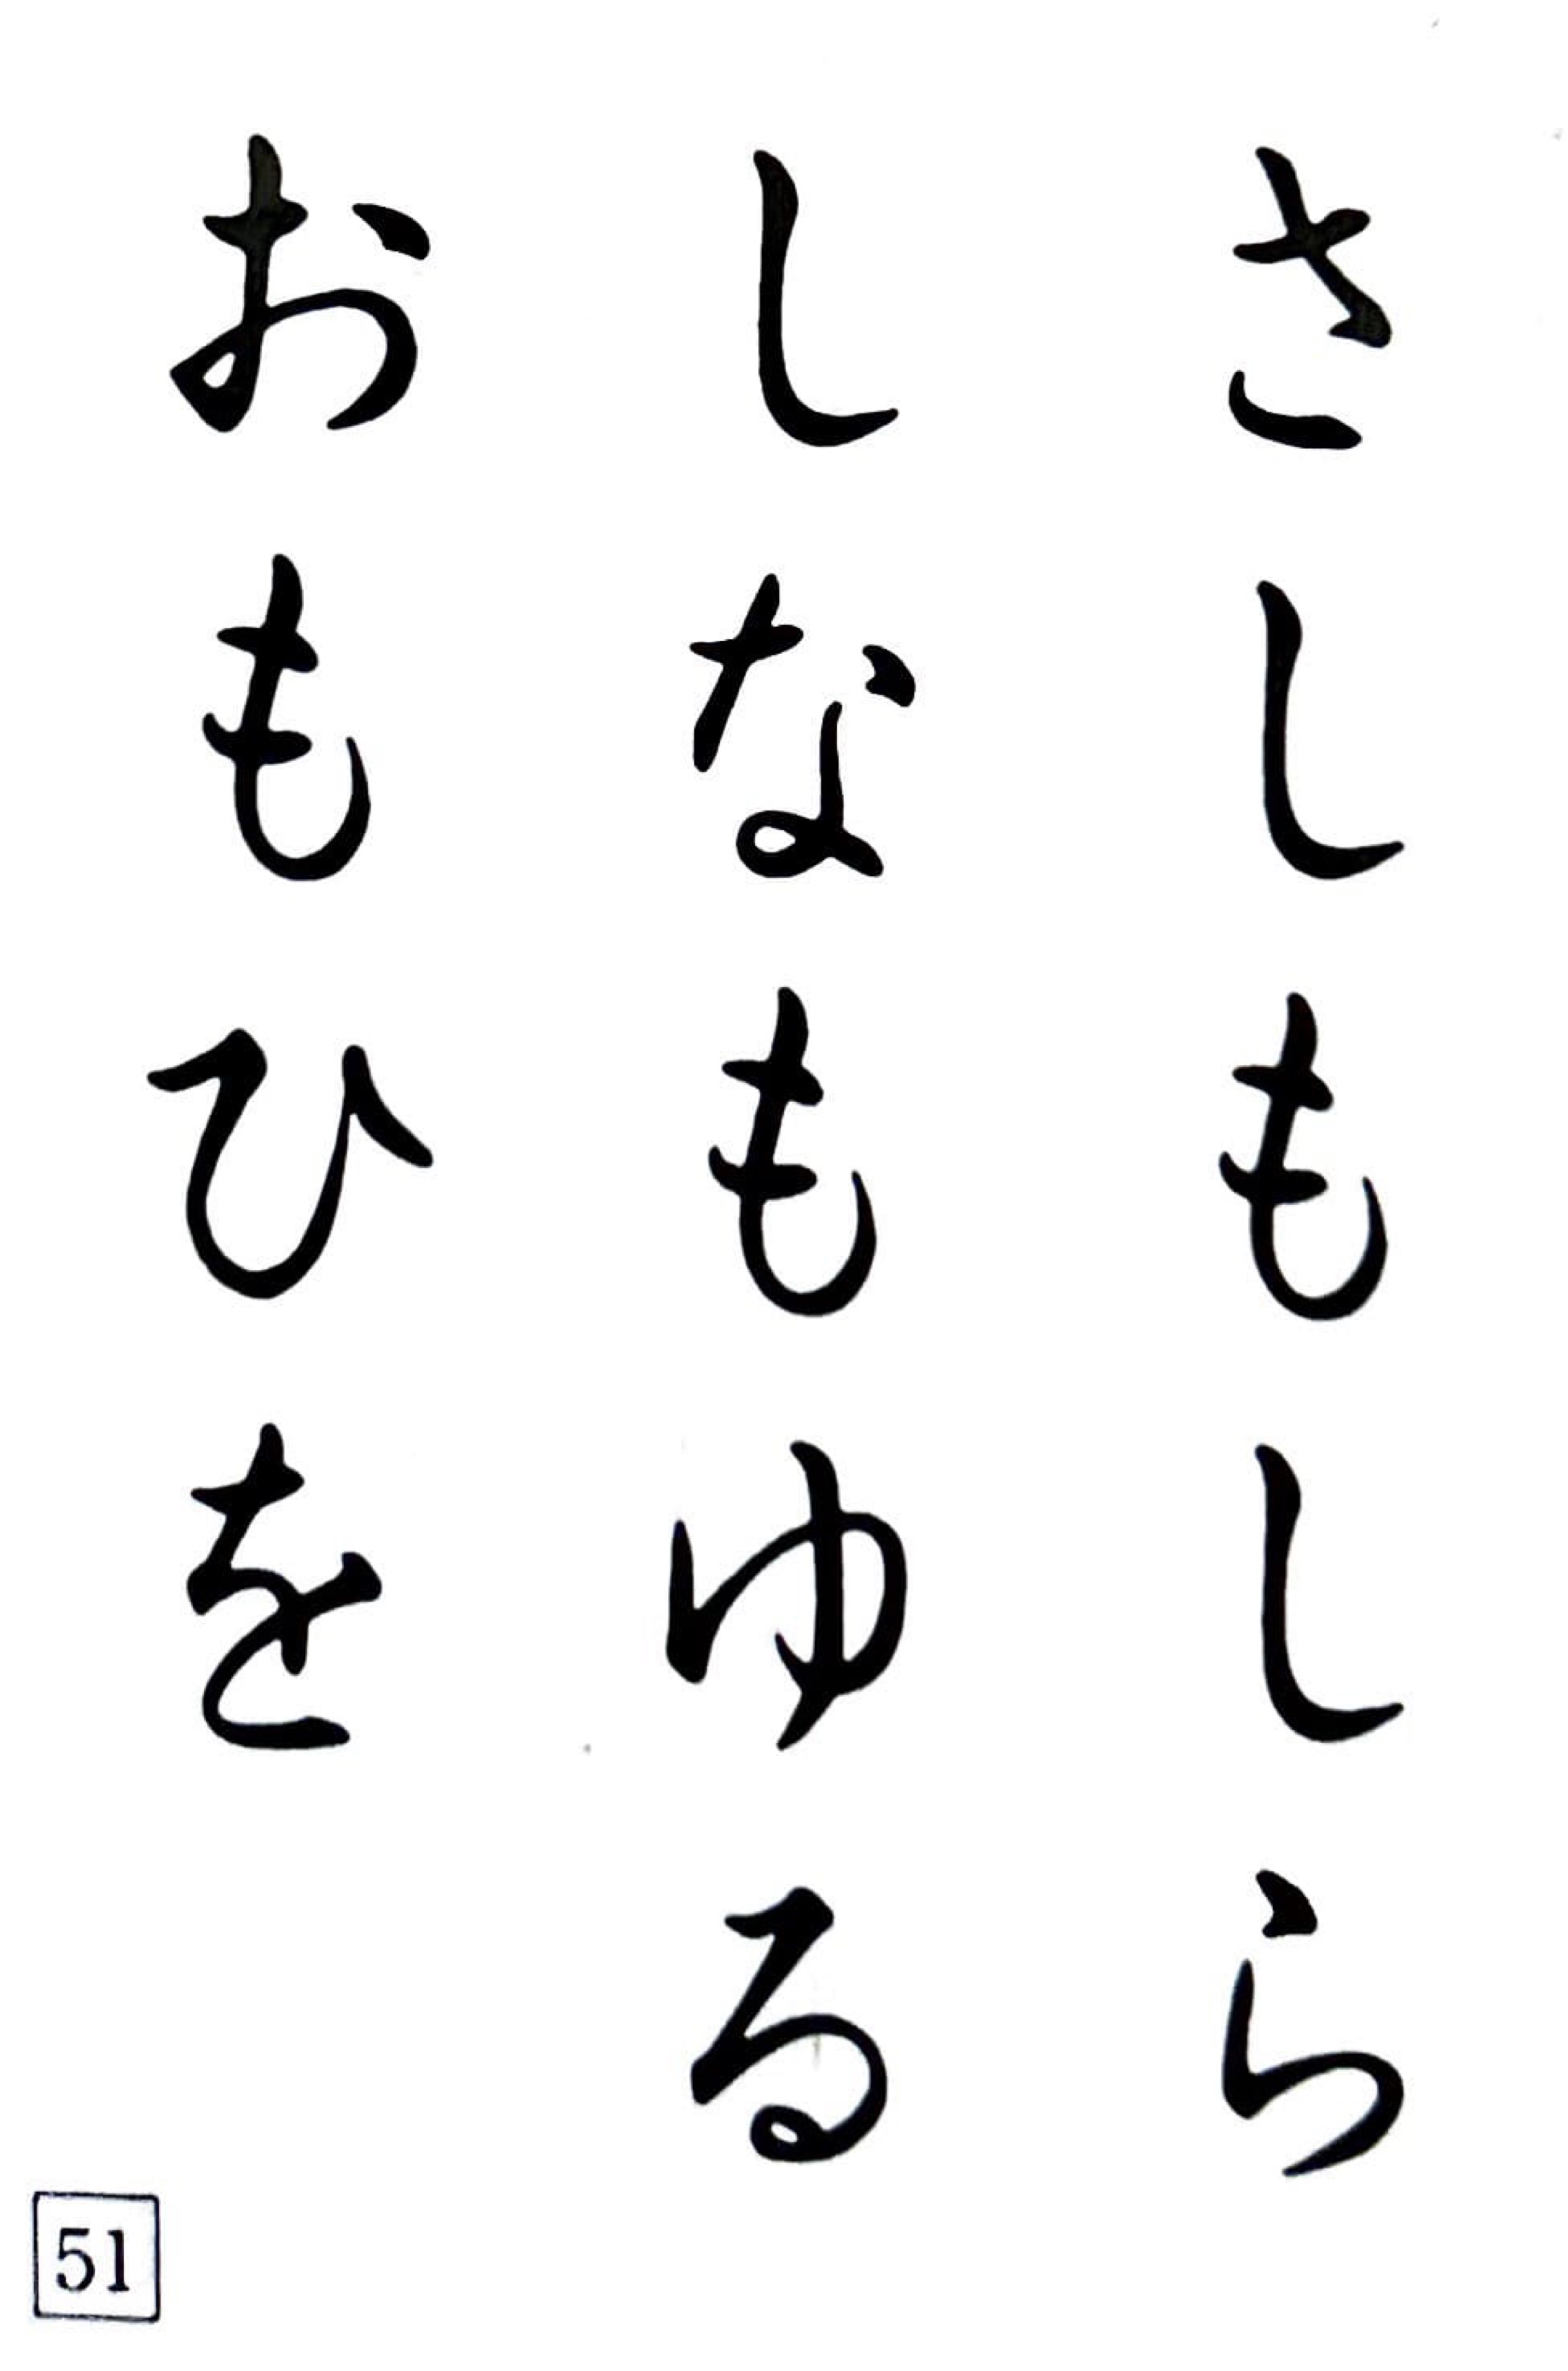 さしもしら
しなもゆる
おもひを
51